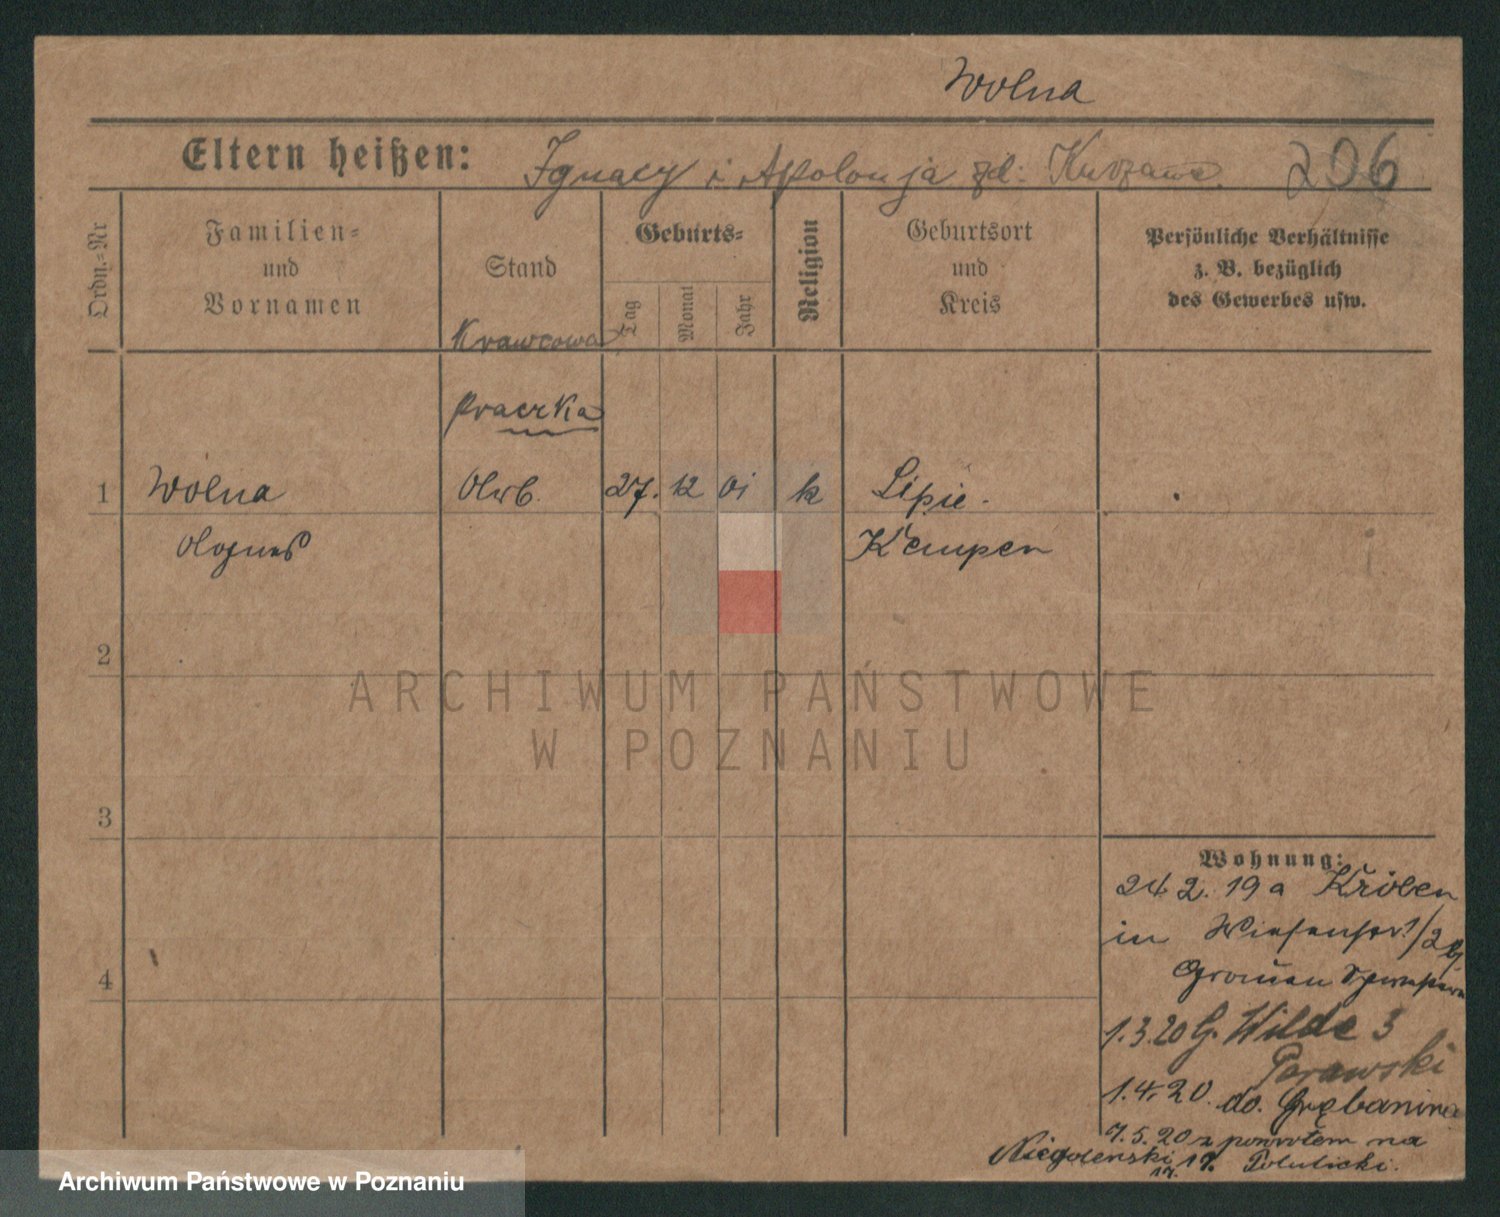 Wolna
Eltern heißen: Ignacy i Apolonja zd: 206
Ordn.-Nr
Familien-
und
Vornamen
Stand
Geburts-
Tag
Monat
Jahr
Religion
Geburtsort
und
Kreis
Persönliche Verhältnisse
z. B. bezüglich
des Gewerbes usw.
Krawcowa
praczka
1 Wolna Arb. 27. 12 01 k Lipie.
Agnes Kempen
2
3
4
Wohnung:
24. 2. 19 a Kröben
in Wiesenstr. 1/2 bj
1. 3. 20 G. Wilde 3
Porawski
1. 4. 20. do. Grębanina
7. 5. 20 z powrotem na
Niegolewski 17. Polulicki.
17.
ARCHIWUM PAŃSTWOWE
W POZNANIU
Archiwum Państwowe w Poznaniu